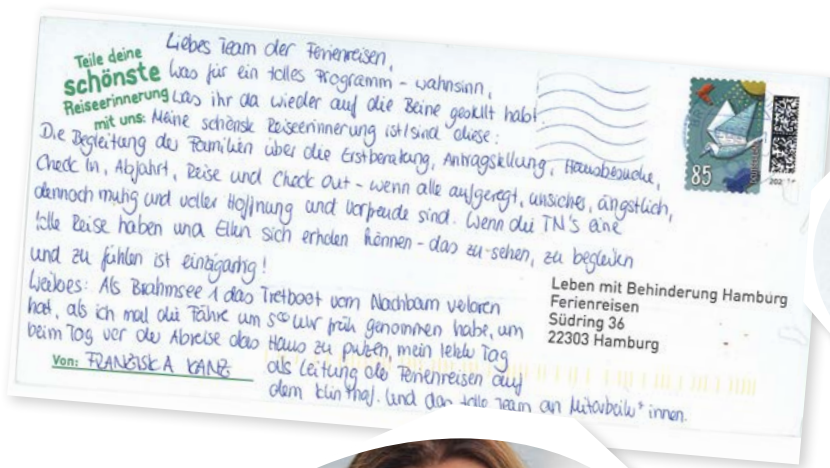 Teile deine
schönste
Reiseerinnerung
mit uns:
Liebes Team der Ferienreisen,
was für ein tolles Programm - wahnsinn,
was ihr da wieder auf die Beine gestellt habt.
Meine schönste Reiseerinnerung ist/sind diese:
Die Begleitung der Familien über die Erstberatung, Antragstellung, Hausbesuche,
Check In, Abfahrt, Reise und Check Out - wenn alle aufgeregt, unsicher, ängstlich,
dennoch mutig und voller Hoffnung und Vorfreude sind. Wenn die TN's eine
tolle Reise haben und Eltern sich erholen können - das zu sehen, zu begleiten
und zu fühlen ist einzigartig!
Weiteres: Als Brahmsee 1 das Tretboot vom Nachbarn verloren
hat, als ich mal die Fähre um 5⁰⁰ Uhr früh genommen habe, um
beim Tag vor der Abreise das Haus zu putzen, mein letzter Tag
als Leitung der Ferienreisen auf
dem Klinthof. Und das tolle Team an Mitarbeiter*innen.
Von: FRANZISKA KANZ
85
Leben mit Behinderung Hamburg
Ferienreisen
Südring 36
22303 Hamburg